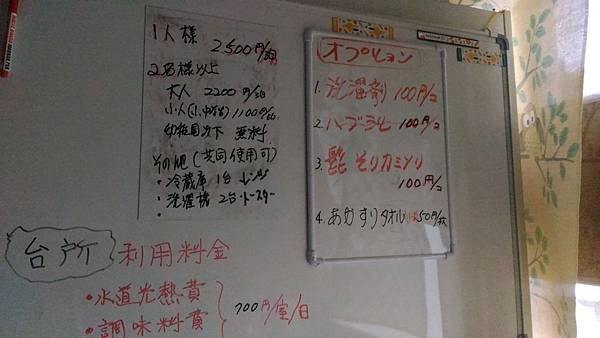 1人様
2500円/泊
2名様以上
大人 2200円/泊
小人(小中学) 1100円/泊
幼稚園以下 無料
その他(共同使用可)
・冷蔵庫 1台 レンジ
・洗濯機 2台・トースター
・
オプション
1. 洗濯剤 100円/コ
2. ハブラシ 100円/コ
3. 髭そりカミソリ
100円/コ
4. あかすりタオル 50円/枚
台所 利用料金
・水道光熱費
・調味料費
700円/室/日